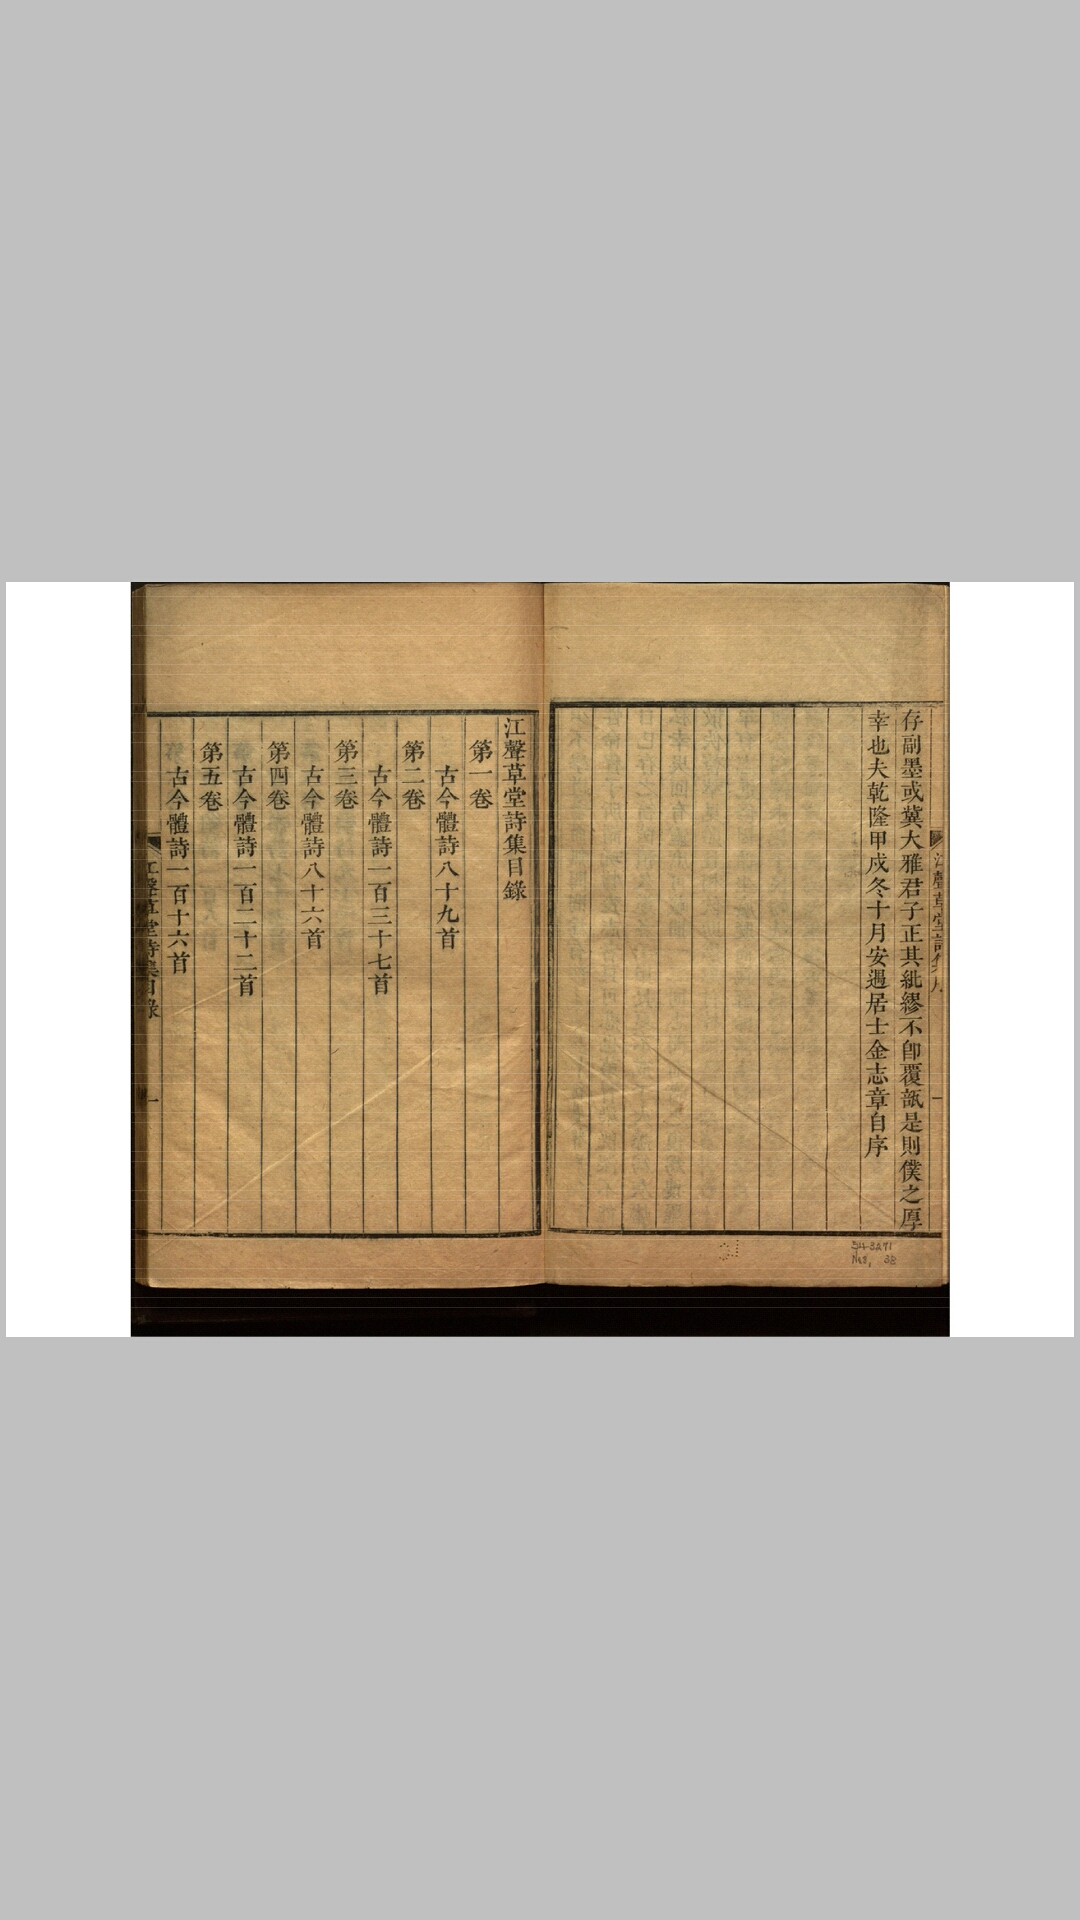 存副墨或冀大雅君子正其紕繆不卽覆瓿是則僕之厚
幸也夫乾隆甲戍冬十月安遇居士金志章自序
江聲草堂詩集目錄
第一卷
古今體詩八十九首
第二卷
古今體詩一百三十七首
第三卷
古今體詩八十六首
第四卷
古今體詩一百二十二首
第五卷
古今體詩一百十六首
江聲草堂詩集目錄
一